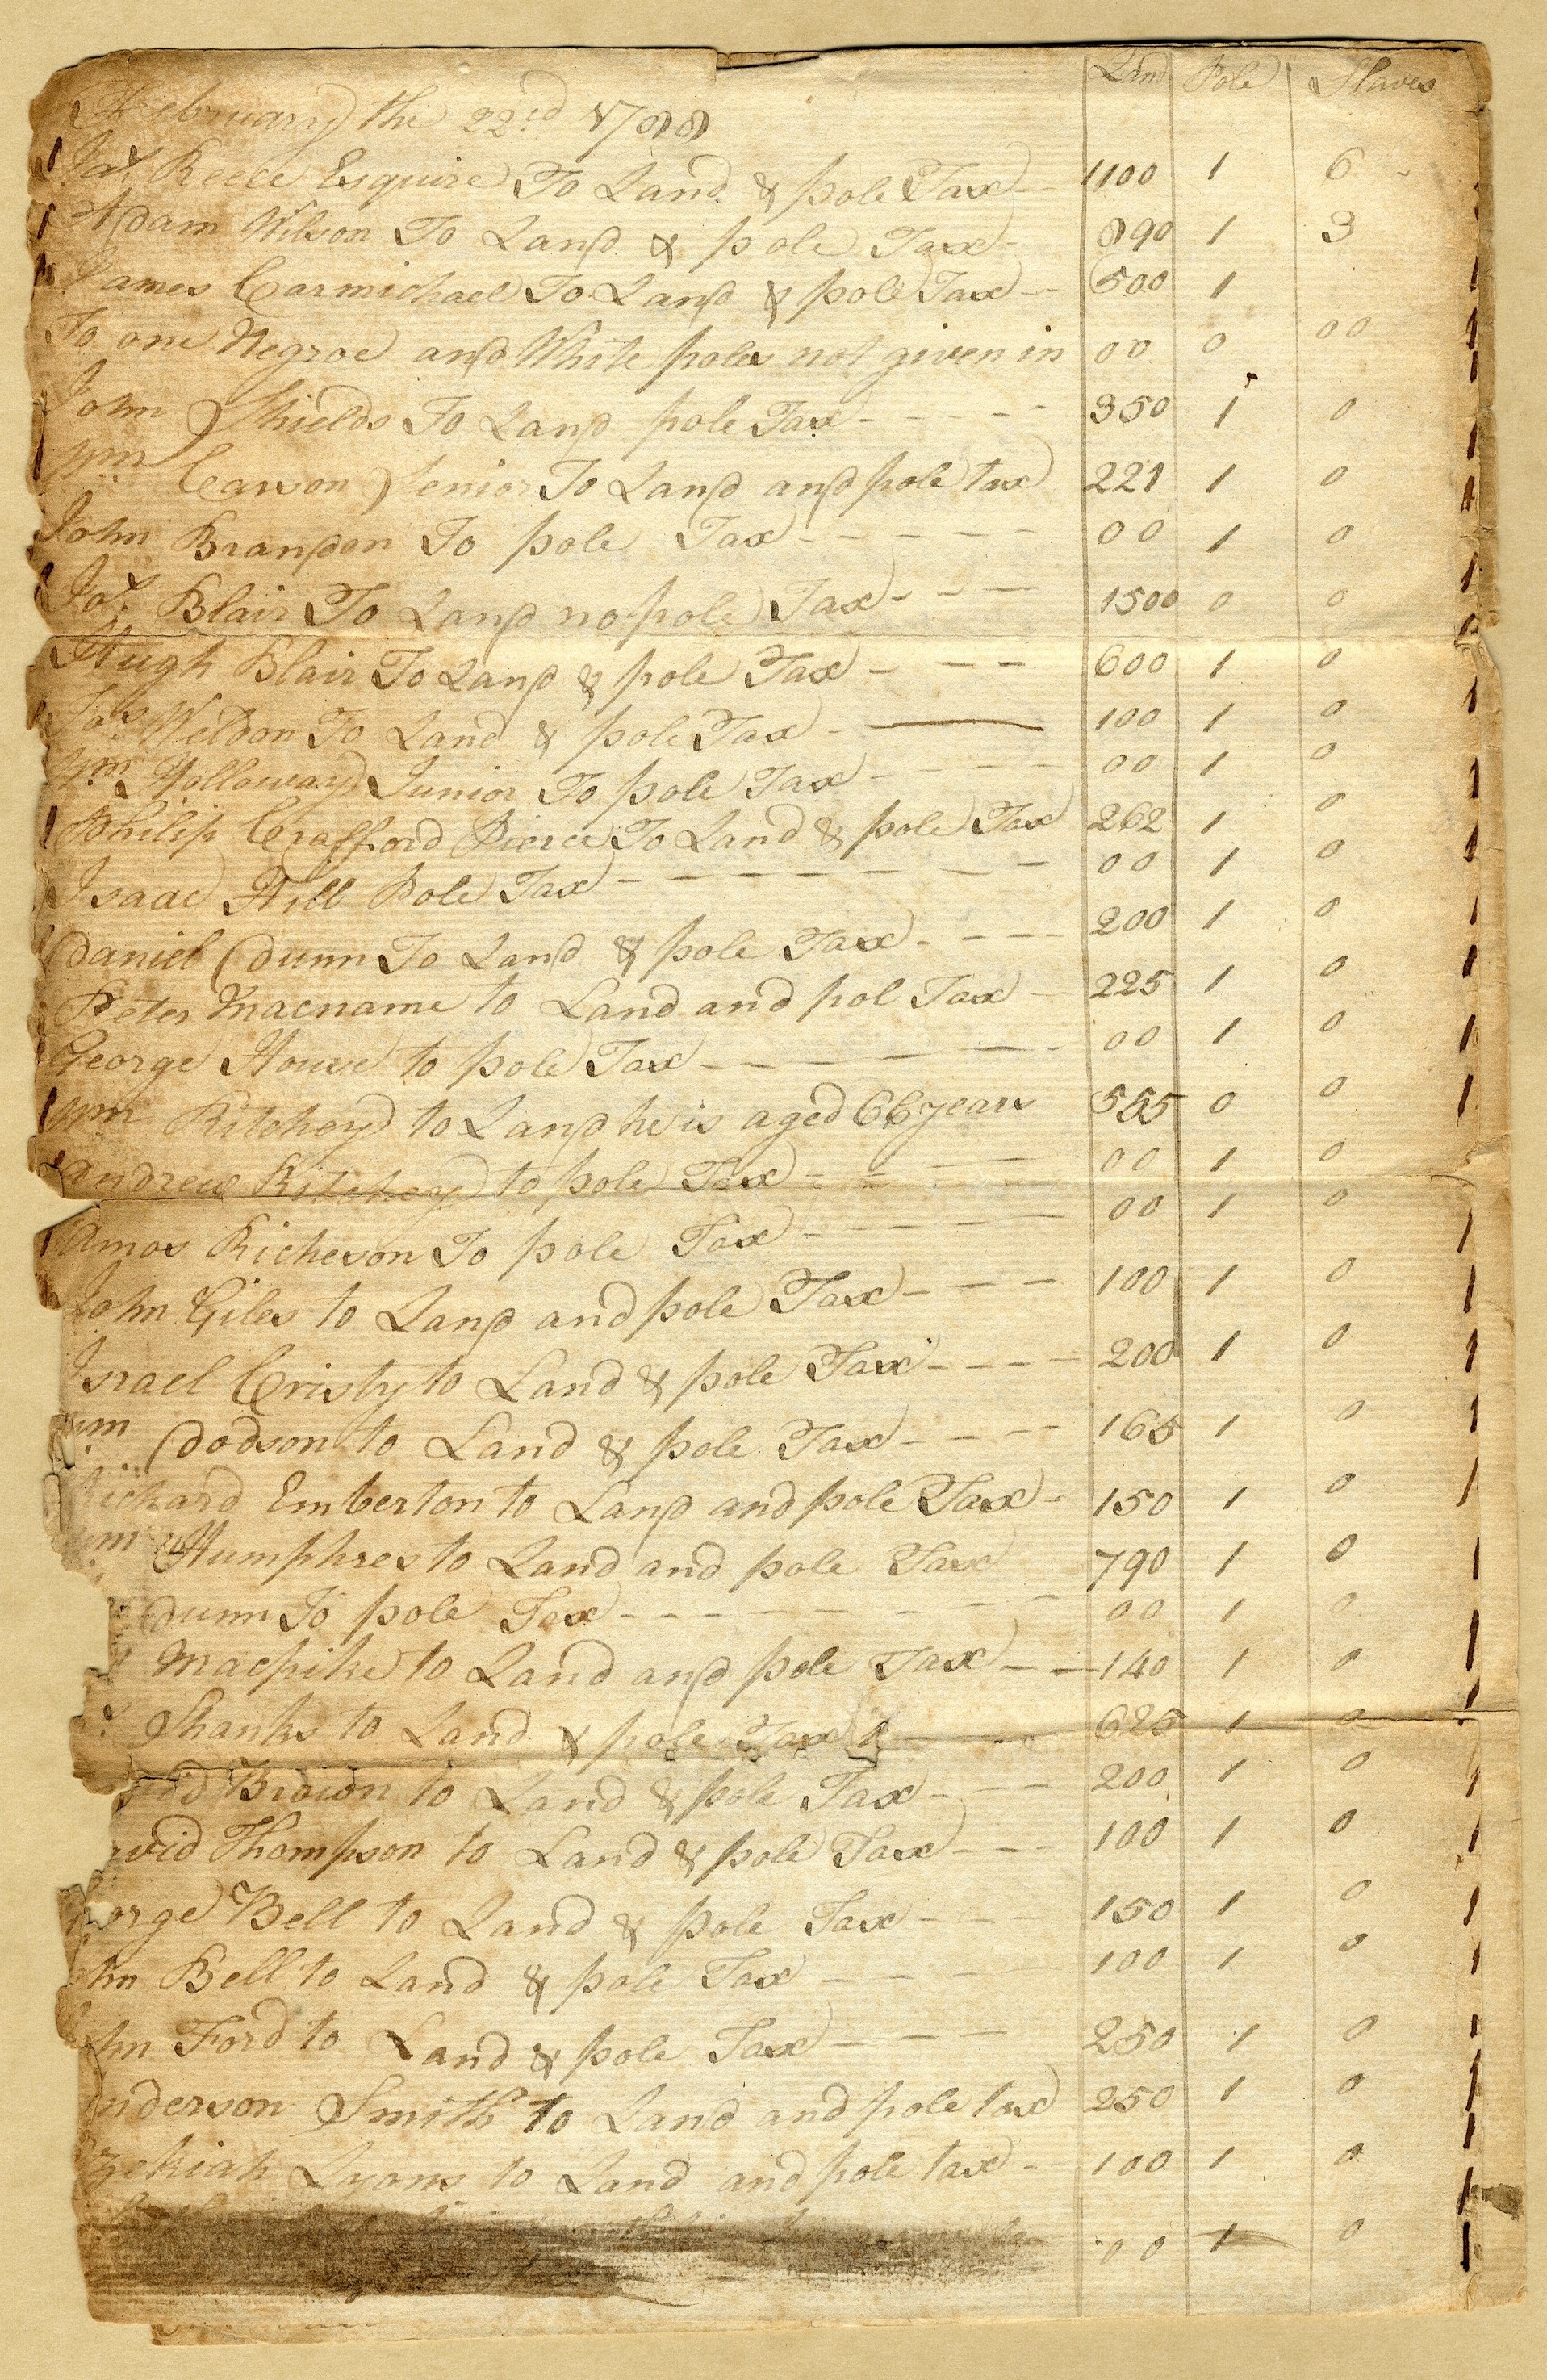 Land Pole Slaves
February the 22cd 1788
Jas Reece Esquire To Land & pole Tax 1100 1 6
Adam Wilson To Land & pole Tax 890 1 3
James Carmichael To Land & pole Tax 500 1
To one Negroe and White poles not given in 00 0 00
John Shields To Land pole Tax 350 1 0
Wm Carson Senior To Land and pole tax 221 1 0
John Brandon To pole Tax 00 1 0
Jas Blair To Land no pole Tax 1500 0 0
Hugh Blair To Land & pole Tax 600 1 0
Jos Weldon To Land & pole Tax 100 1 0
Wm Holloway Junior To pole Tax 00 1 0
Philip Crafford Pierce To Land & pole Tax 262 1 0
Isaac Hill Pole Tax 00 1 0
Daniel Dunn To Land & pole Tax 200 1 0
Peter Macname to Land and pol Tax 225 1 0
George House to pole Tax 00 1 0
Wm Ritchey to Land he is aged 66 years 555 0 0
Andrew Ritchey to pole Tax 00 1 0
Amos Richeson To pole Tax 00 1 0
John Giles to Land and pole Tax 100 1 0
Israel Cristy to Land & pole Tax 200 1 0
Wm Dodson to Land & pole Tax 165 1 0
Richard Emberton to Land and pole Tax 150 1 0
Wm Humphres to Land and pole Tax 790 1 0
Dunn To pole Tax 00 1 0
Macpike to Land and pole Tax 140 1 0
Shanks to Land & pole Tax 625 1 0
Brown to Land & pole Tax 200 1 0
vid Thompson to Land & pole Tax 100 1 0
orge Bell to Land & pole Tax 150 1 0
hn Bell to Land & pole Tax 100 1 0
hn Ford to Land & pole Tax 250 1 0
nderson Smith to Land and pole tax 250 1 0
zekiah Lyons to Land and pole tax 100 1 0
00 1 0